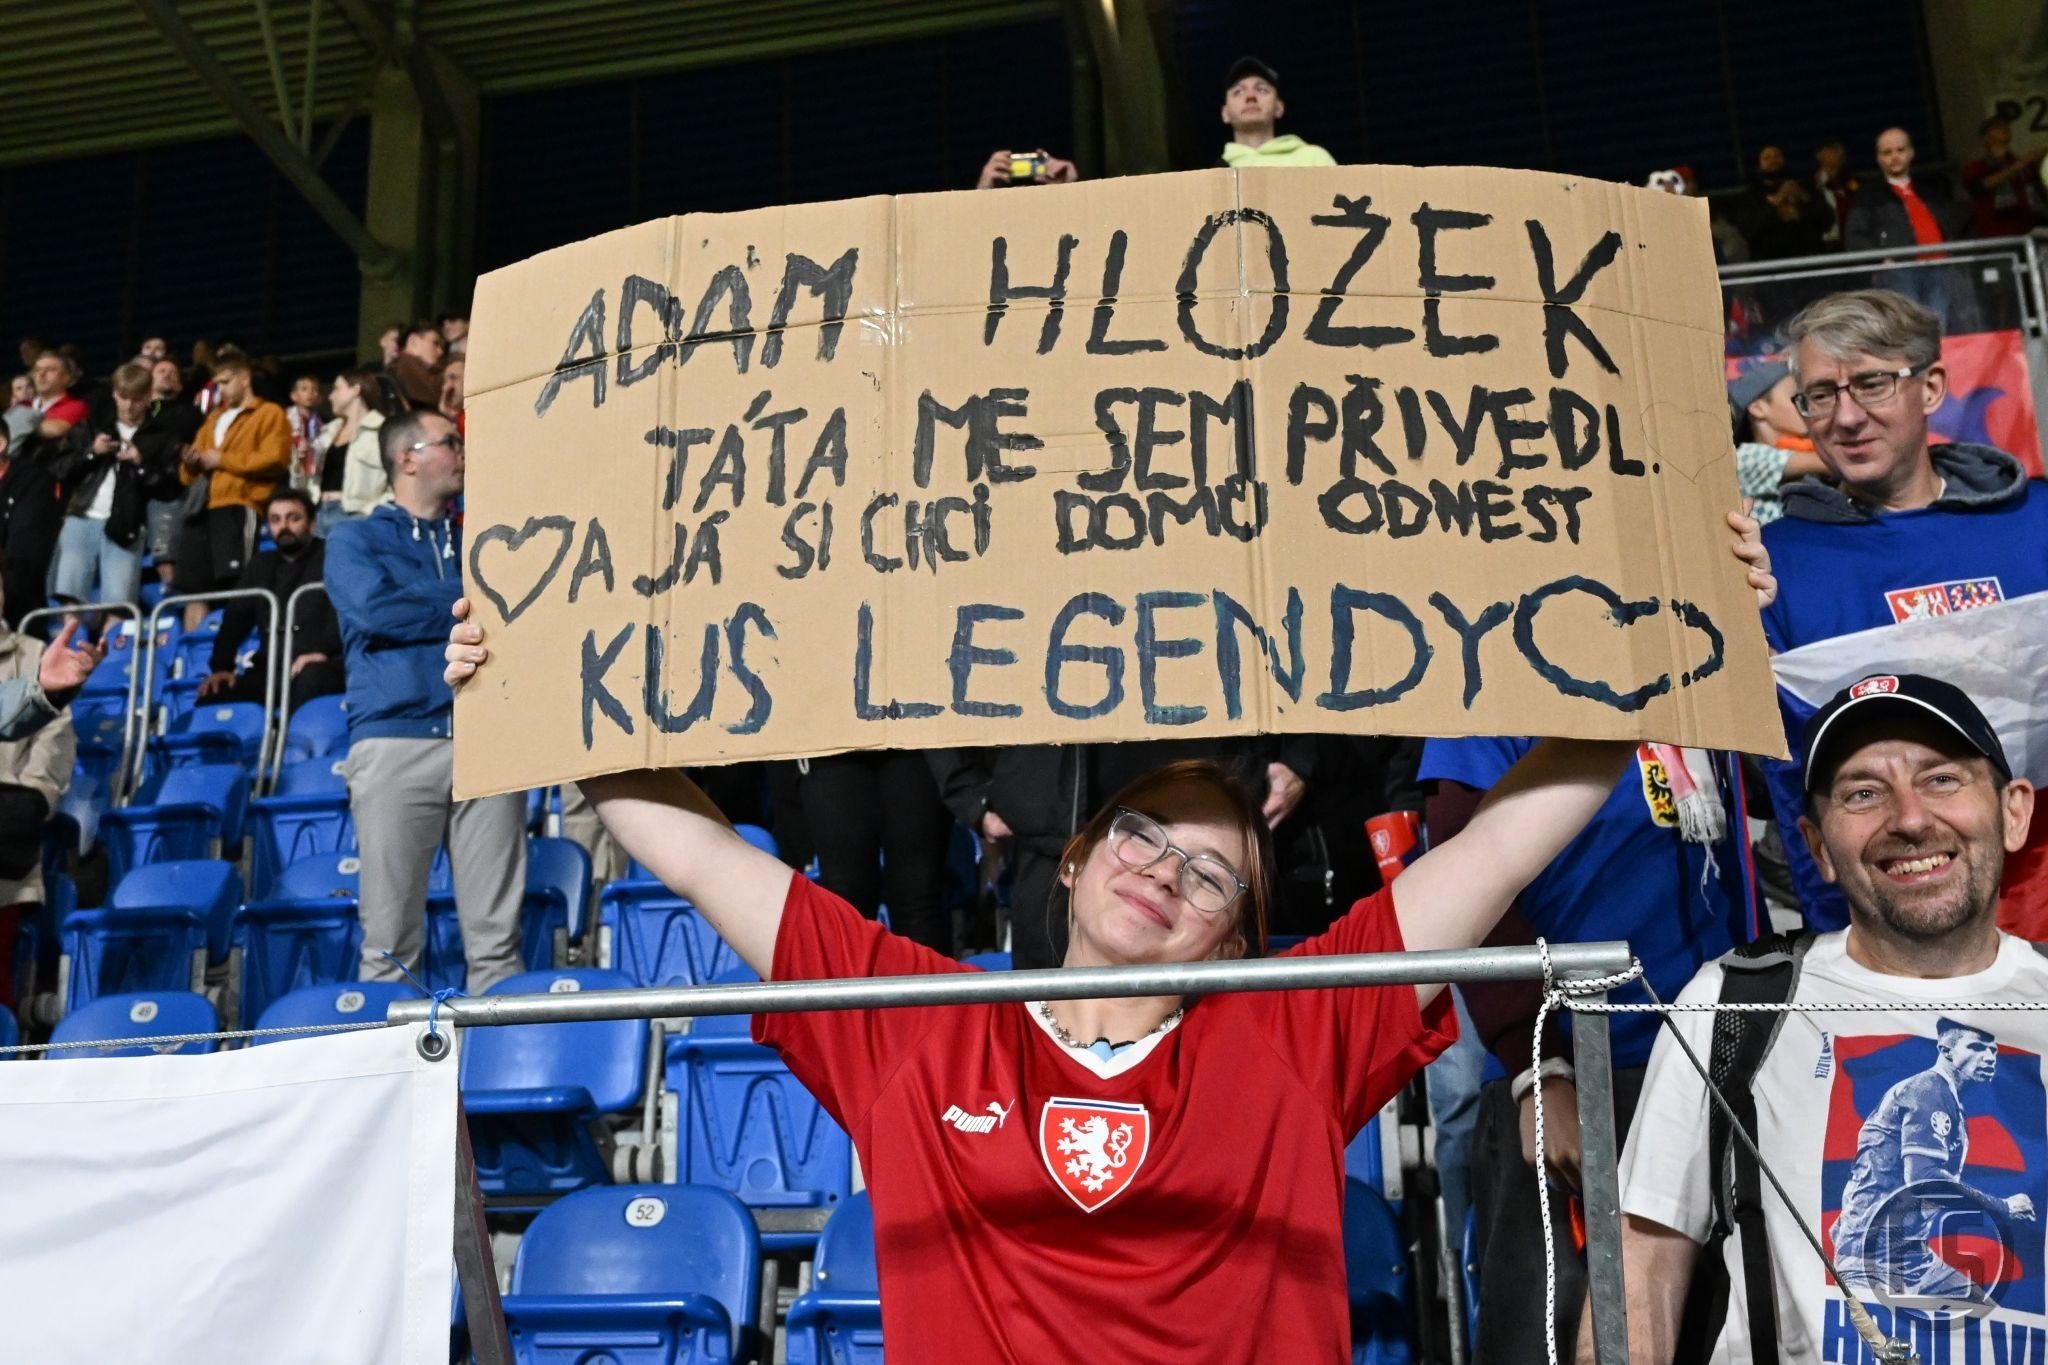 ADAM HLOŽEK
TÁTA MĚ SEM PŘIVEDL.
A JÁ SI CHCI DOMŮ ODNEST
KUS LEGENDY
PUMA
49
50
51
52
P2
FS